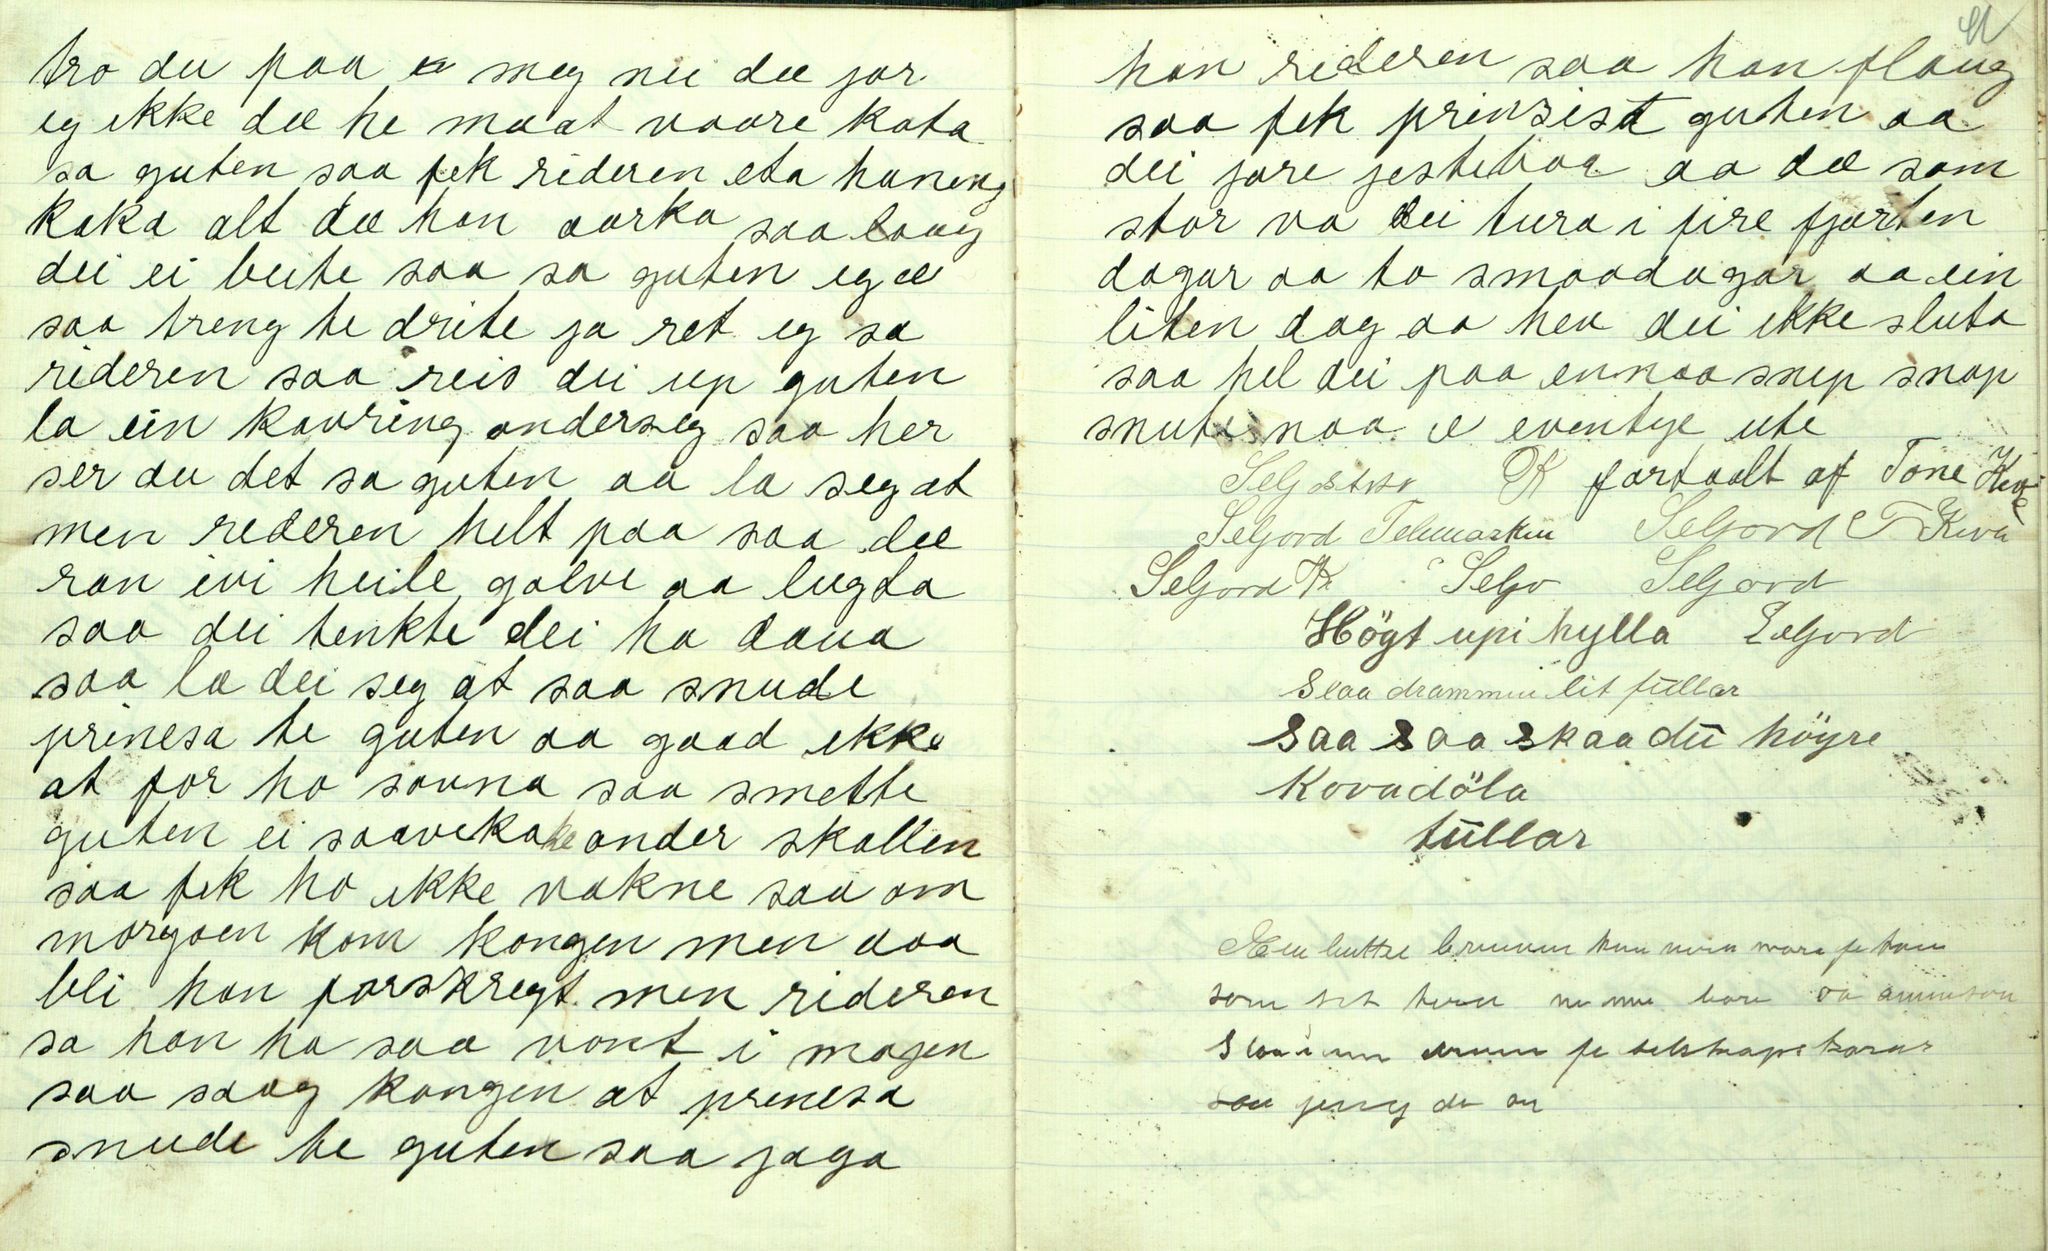 tro du paa meg nei dæ jor
eg ikke dæ he maat vaare kata
sa guten saa fek rideren eta haneng
kaka alt dæ han aarka saa laag
dei ei beite saa sa guten eg æ
saa treng te drite ja ret eg sa
rideren saa reis dei up guten
la ein kavring onderseg saa her
ser du det sa guten aa la seg at
men rederen helt paa saa dæ
ran ivi heile golve aa lugta
saa dei tenkte dei ha daua
saa la dei seg at saa snude
prinesa te guten aa gaad ikke
at for ho sovna saa smette
guten ei saavekake onder skallen
saa fek ho ikke vakne saa om
morgoen kom kongen men daa
blei han forskregt. men rideren
sa han ha saa vont i magen
saa saag kongen at prenesa
snude te guten saa jaga
han rideren saa han flaug
saa fek prinsist guten aa
dei jore jestebaa aa dæ som
stor va dei tura i fire fjorten
dagar aa to smaadagar aa ein
liten dag aa hev dei ikke sluta
saa hel dei paa ennaa snip snap
snute naa æ eventye ute
fortaalt af Tone Kivle
Seljord Telemarken Seljord T Kivle
Seljord Seljo Seljord
Högt upi hylla Seljord
Slaa drammin lit füllar
Saa Saa Skaa dü höyre
Kovadöla
tüllar